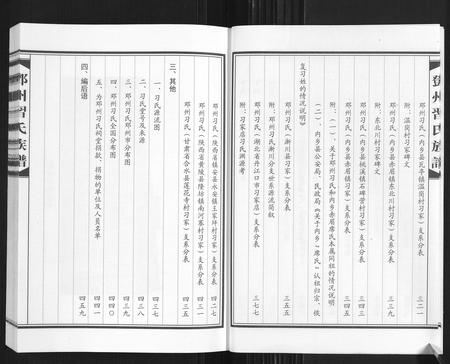 邓州习氏族谱
邓州习氏(内乡县瓦亭镇温岗村习家)支系分表 三二一
附:温岗村习家碑文
邓州习氏(内乡县赤眉镇东北川村习家)支系分表
附:东北川村习家碑文
邓州习氏(内乡县桃溪镇石碑营村习家)支系分表 三四三
邓州习氏(内乡县赤眉镇习营村习家)支系分表 三四五
附:(一)《关于邓州习氏和内乡赤眉席氏本属同祖的情况说明》
(二)内乡县公安局、民政局《关于内乡"席氏"认祖归宗、恢
复习姓的情况说明》
邓州习氏(淅川县习家)支系分表 三五五
附:邓州习氏淅川分支世系源流简叙
邓州习氏(湖北省丹江口市习家店)支系分表 三七七
附:习家店习氏渊源考
邓州习氏(陕西省镇安县永安镇王家坪村习家)支系分表 四二七
邓州习氏(陕西省黄陵县隆坊镇南河寨村习家)支系分表 四三一
邓州习氏(甘肃省合水县莲花寺村习家)支系分表 四三五
三、其他
一、习氏源流图 四三七
二、习氏堂号及来源 四三八
三、邓州习氏邓州市分布图 四三九
四、邓州习氏全国分布图 四四〇
五、为邓州习氏祠堂捐款、捐物的单位及人员名单 四四一
四、编后语 四五九
邓州习氏族谱